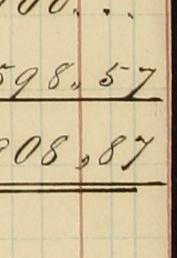 00. . .
598.57
808,87